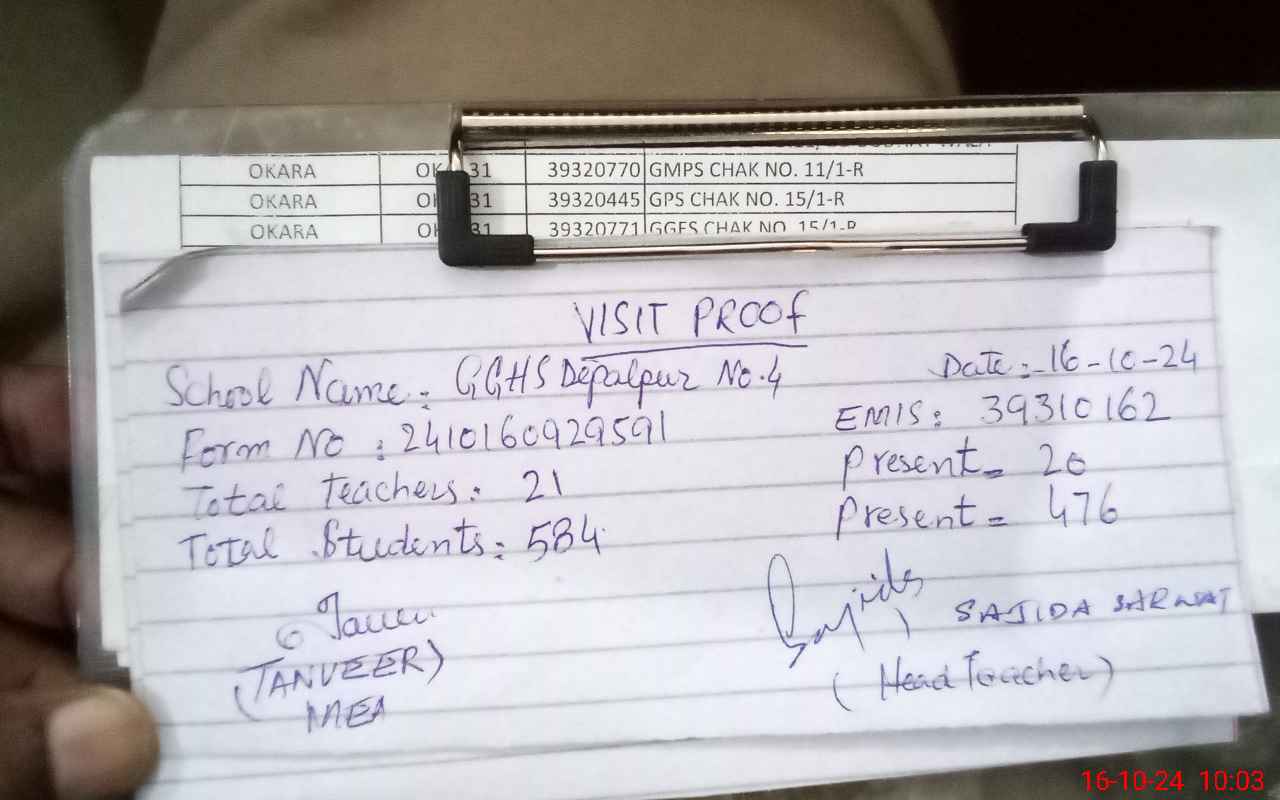 OKARA 31 39320770 GMPS CHAK NO. 11/1-R
OKARA 31 39320445 GPS CHAK NO. 15/1-R
OKARA 31 39320771 GGES CHAK NO. 15/1-R
VISIT PROOF
School Name: GGHS Depalpur No.4 Date: 16-10-24
Form No: 2410160929591 EMIS: 39310162
Total teachers: 21 Present = 20
Total Students: 584 Present = 476
Tanveer Sajida SAJIDA SARWAT
(TANVEER) (Head Teacher)
MEA
16-10-24 10:03